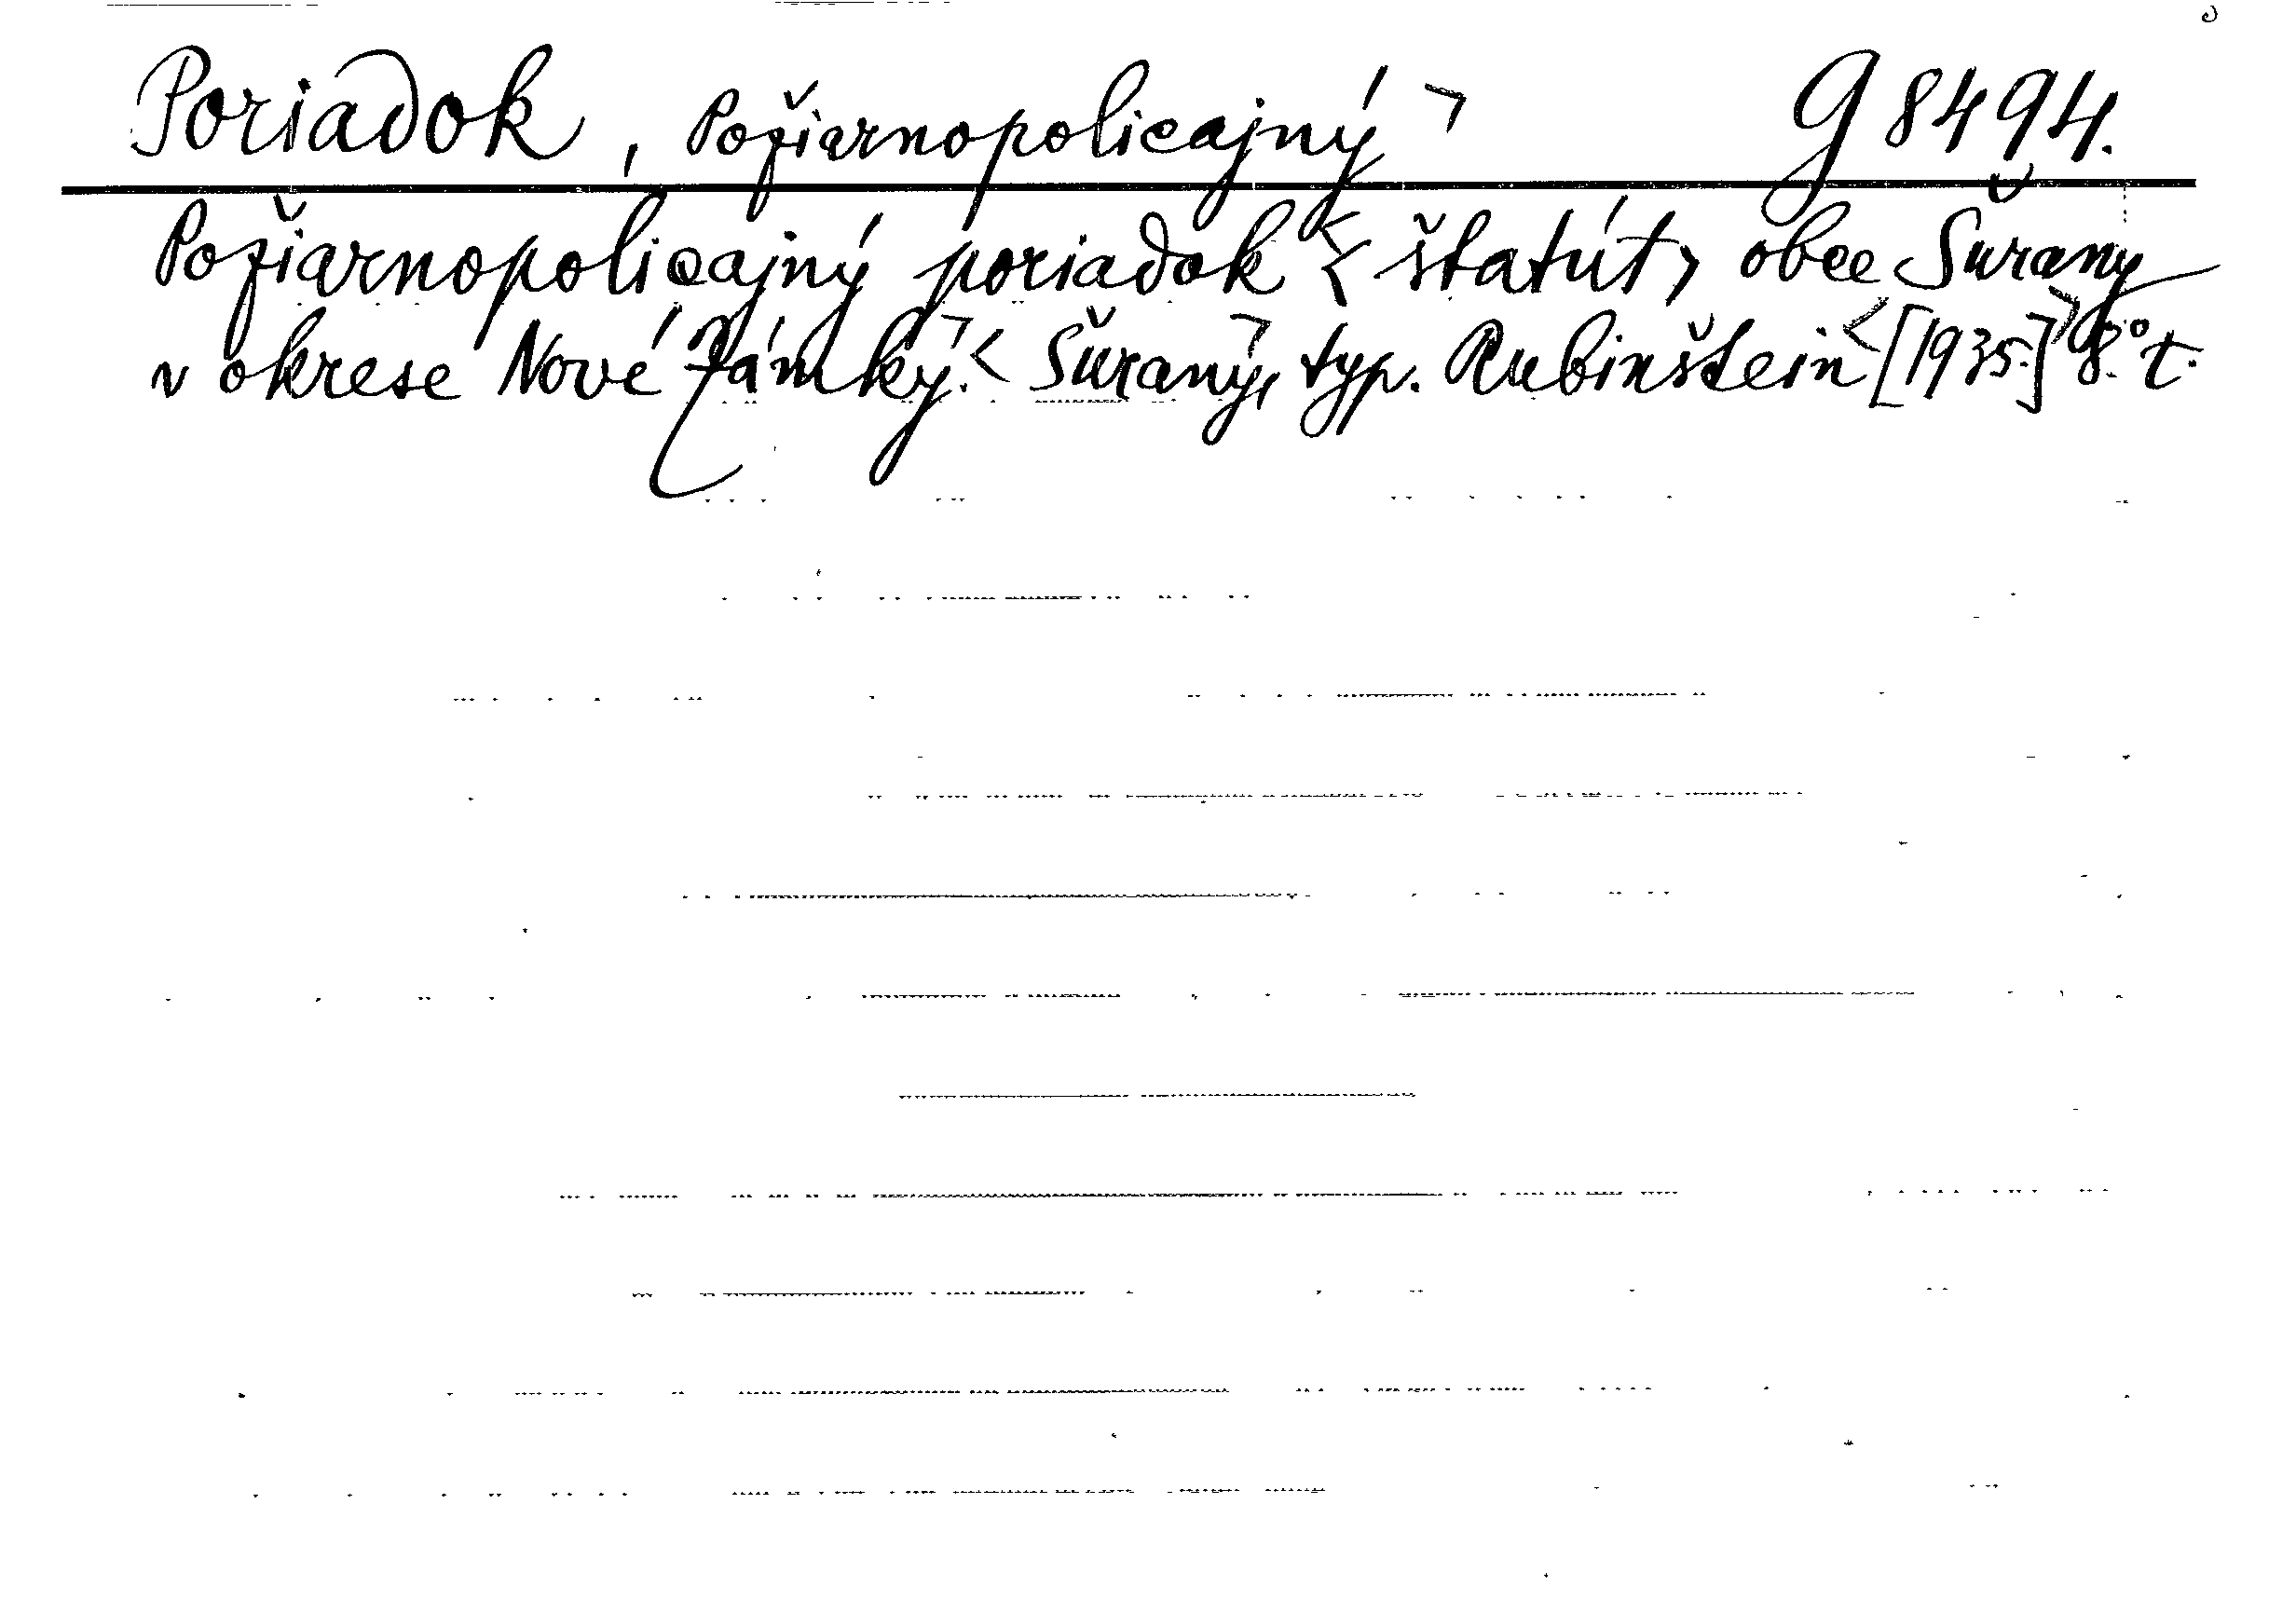 Poriadok, Požiarnopolicajný ¬ G 8494.
Požiarnopolicajný poriadok < štatút > obce Šurany
v okrese Nové Zámky. < Šurany, typ. Rubinštein < [1935.] 8° t.